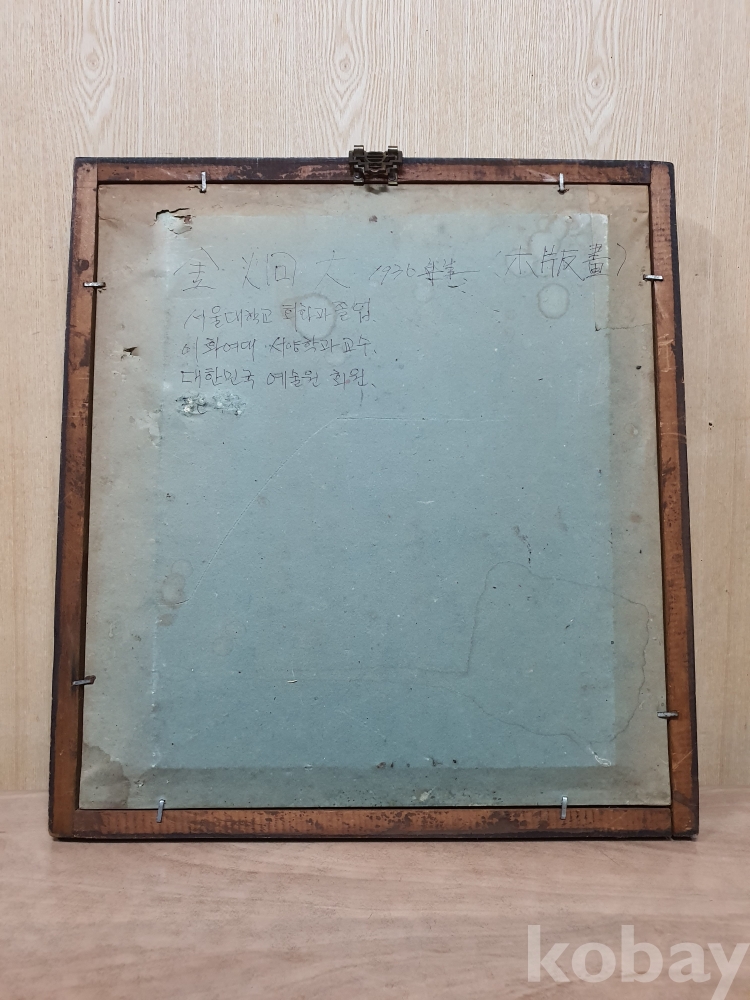 金 烟 文 1936 年생 (木版畫)
서울대학교 회화과 졸업.
이화여대 서양학과 교수.
대한민국 예술원 회원.
kobay